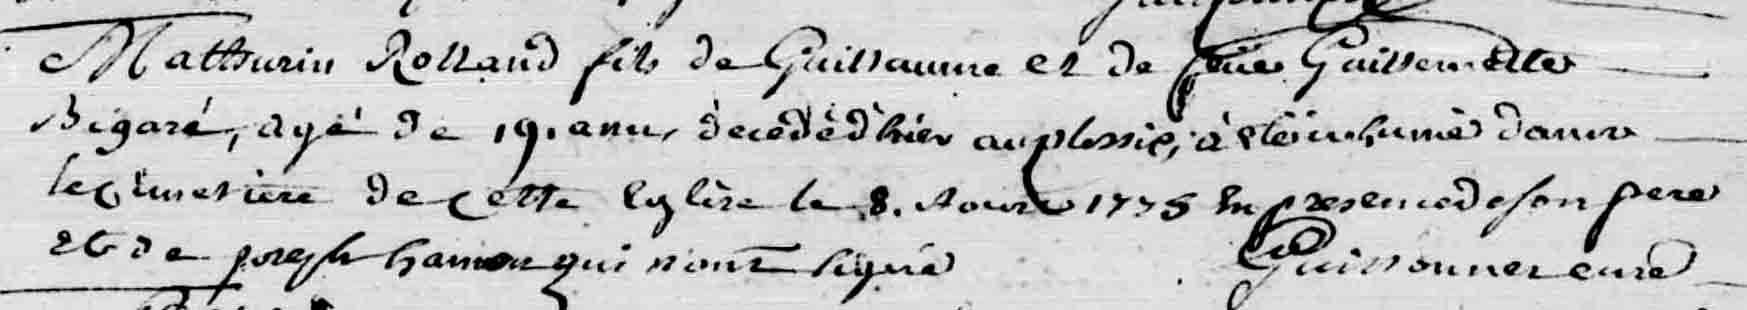 Mathurin Rolland fils de Guillaume et de feüe Guillemette
Bigaré, agé de 19. ans, decedé d'hier au plessix, à eté inhumé dans
le cimetiere de cette Eglise le 8. Aoust 1775 En presence de son pere
et de joseph hamon qui n'ont signé
Guillonner curé